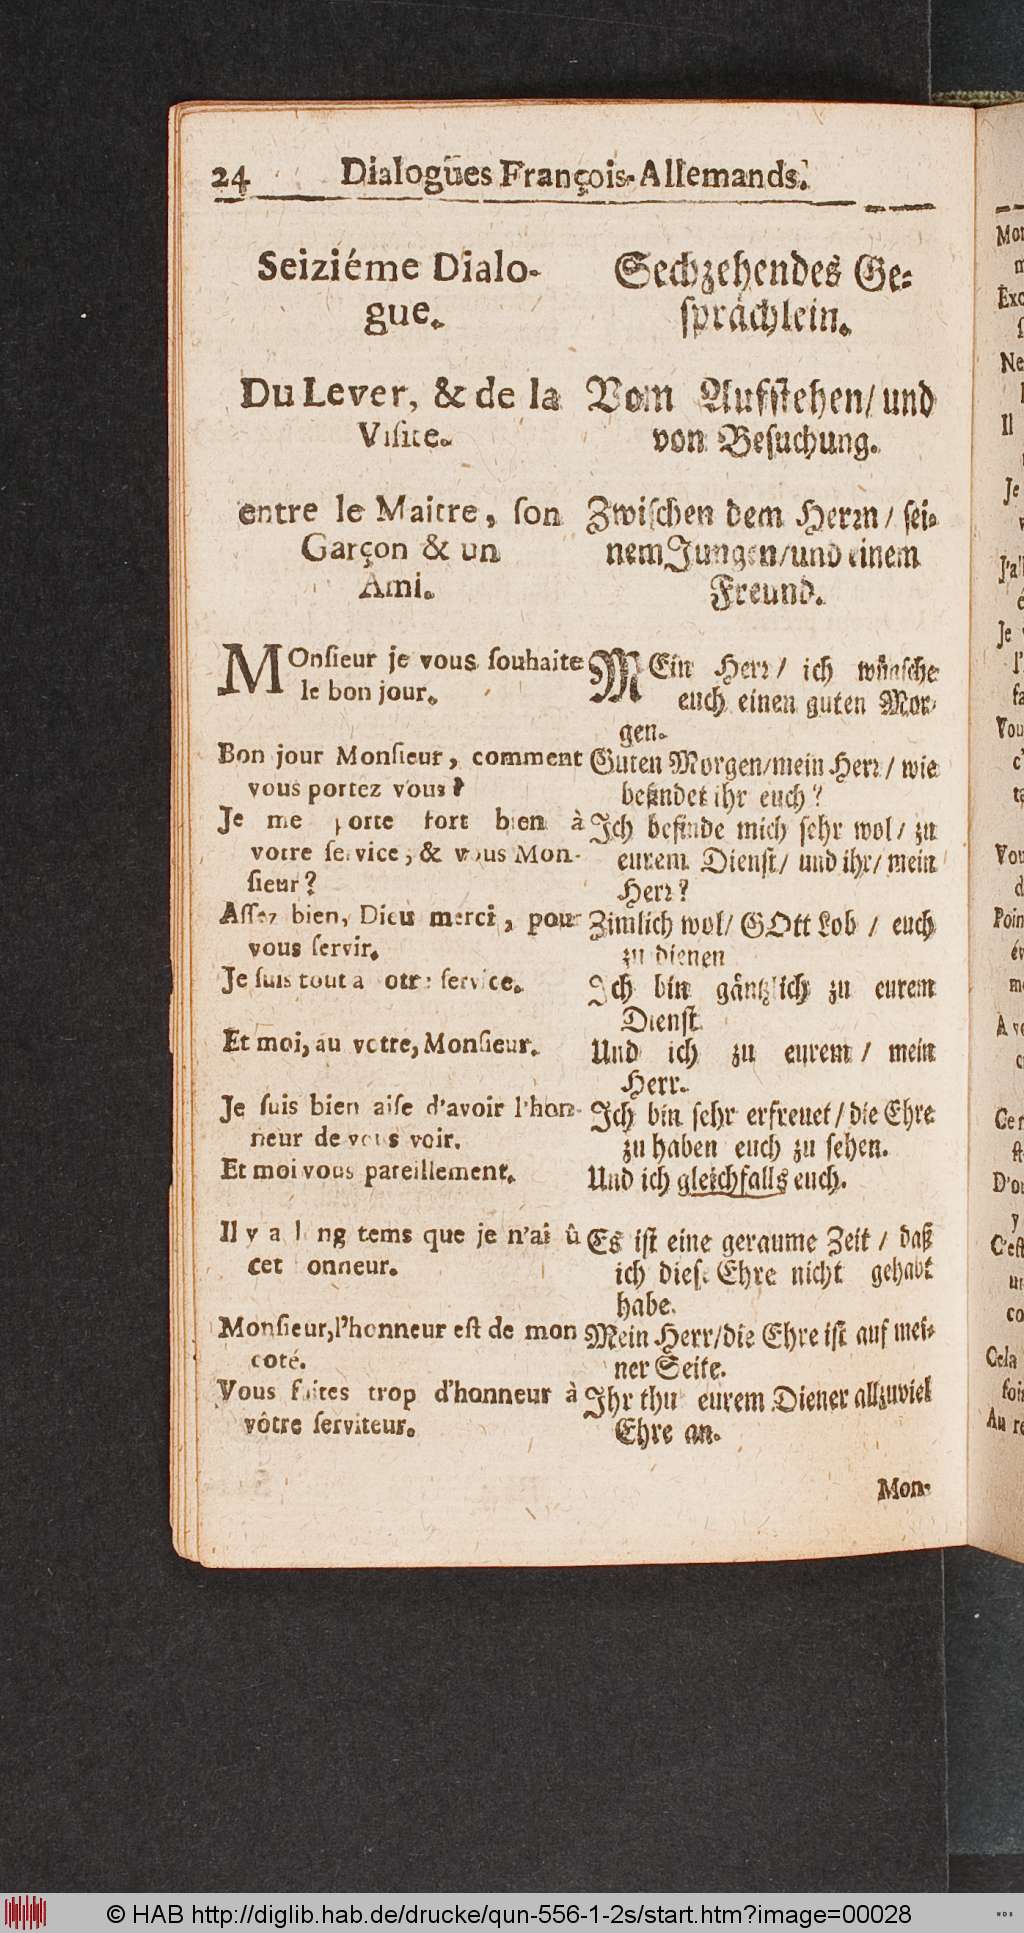 24 Dialogües François-Allemands.
Seiziéme Dialo-
gue.
Du Lever, & de la
Visite.
entre le Maitre, son
Garçon & un
Ami.
MOnsieur je vous souhaite
le bon jour.
Bon jour Monsieur, comment
vous portez vous?
Je me porte fort bien à
votre service, & vous Mon-
sieur?
Assez bien, Dieu merci, pour
vous servir.
Je suis tout a votre service.
Et moi, au votre, Monsieur.
Je suis bien aise d'avoir l'hon-
neur de vous voir.
Et moi vous pareillement.
Il y a long tems que je n'ai û
cet honneur.
Monsieur, l'honneur est de mon
coté.
Vous faites trop d'honneur à
vôtre serviteur.
Sechzehendes Ge-
sprächlein.
Vom Aufstehen/ und
von Besuchung.
Zwischen dem Herrn/ sei-
nem Jungen/ und einem
Freund.
MEin Herr/ ich wünsche
euch einen guten Mor-
gen.
Guten Morgen/ mein Herr/ wie
befindet ihr euch?
Ich befinde mich sehr wol/ zu
eurem Dienst/ und ihr/ mein
Herr?
Zimlich wol/ GOtt Lob/ euch
zu dienen
Ich bin gäntzlich zu eurem
Dienst.
Und ich zu eurem/ mein
Herr.
Ich bin sehr erfreuet/ die Ehre
zu haben euch zu sehen.
Und ich gleichfalls euch.
Es ist eine geraume Zeit/ daß
ich diese Ehre nicht gehabt
habe.
Mein Herr/ die Ehre ist auf mei-
ner Seite.
Ihr thu eurem Diener allzuviel
Ehre an.
Mon-
Ne
Il
Je
Je
Vou
Vou
Poin
A vo
D'o
y
C'est
un
co
Cela
foi
Au re
© HAB http://diglib.hab.de/drucke/qun-556-1-2s/start.htm?image=00028